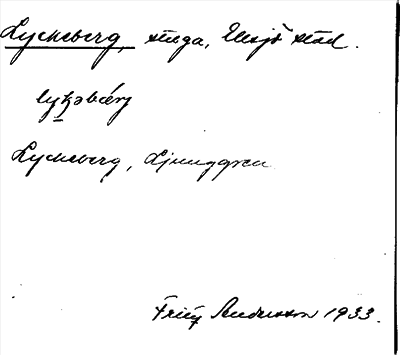 Lyckeberg, stuga, Eksjö stad.
lykəbærj
Lyckeberg, Ljunggren
Fritz Andersson 1933.